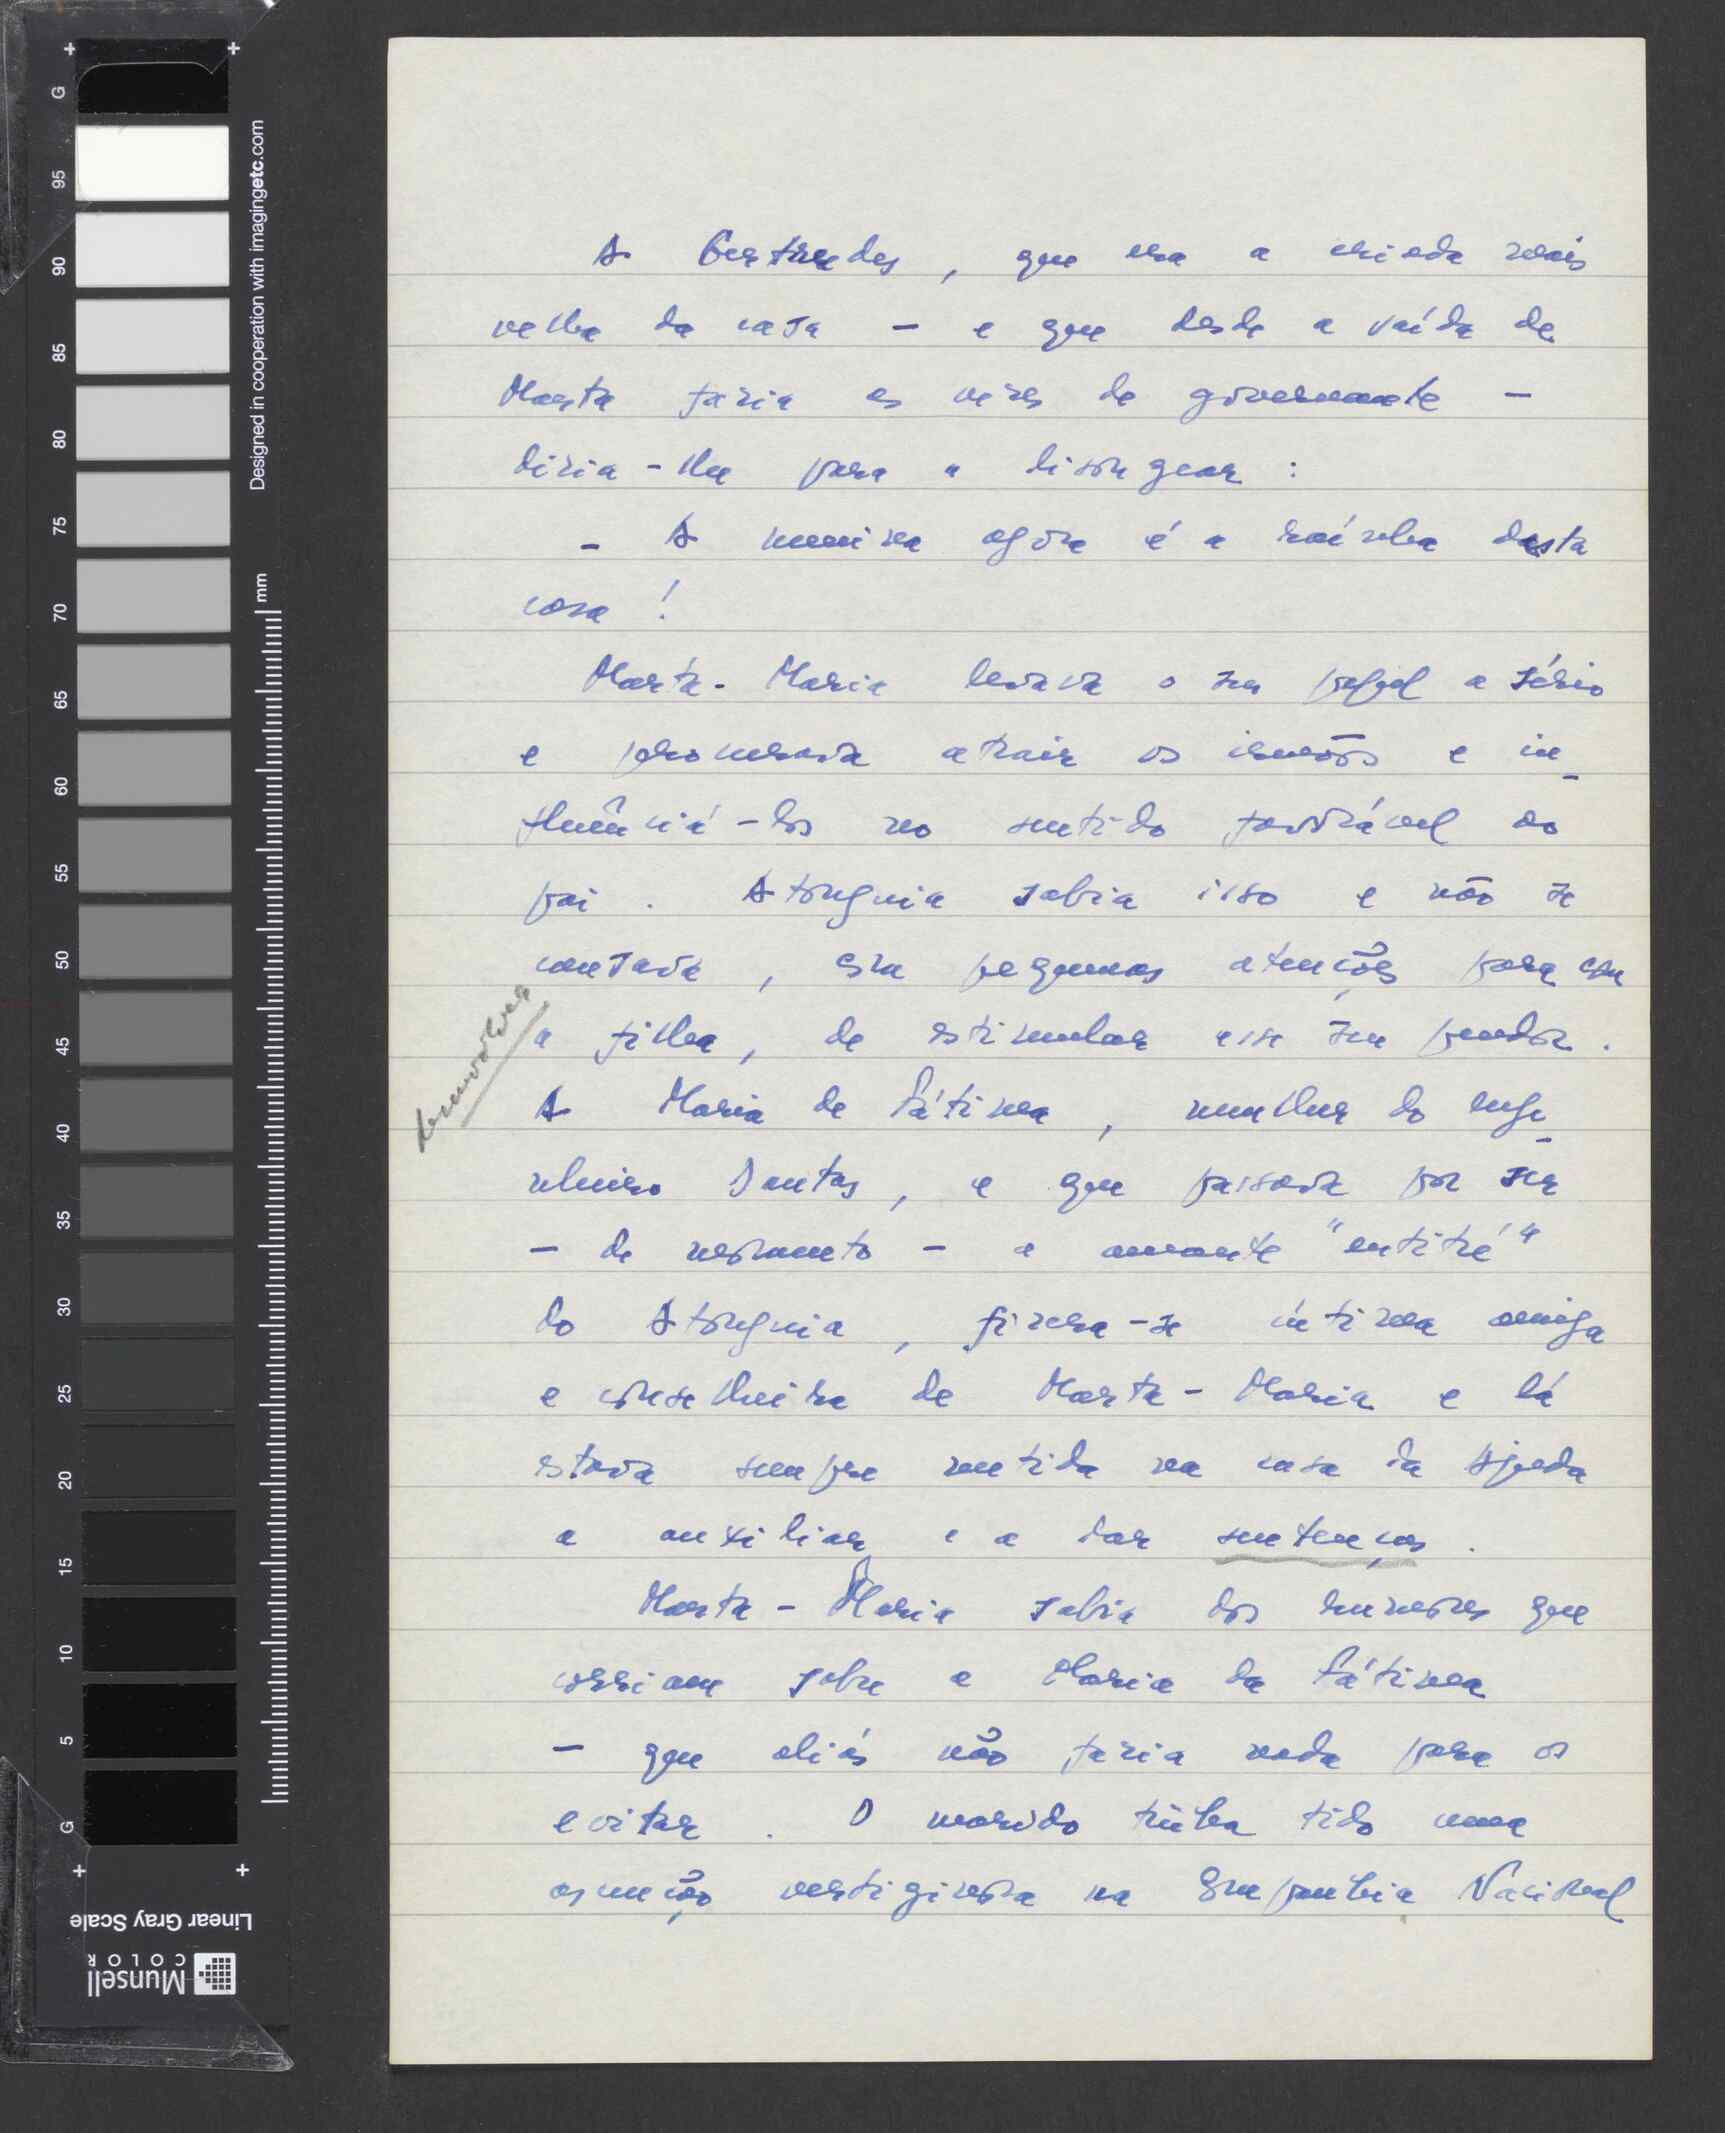 A Gertrudes, que era a criada mais
velha da casa – e que desde a saída de
Marta fazia as vezes de governante –
dizia-lhe para a lisongear :
– A menina agora é a rainha desta
casa !
Marta-Maria levava o seu papel a sério
e procurava atrair os irmãos e in-
fluênciá-los no sentido favorável ao
pai . Atouguia sabia isso e não se
cansava , em pequenas atenções para com
a filha , de estimular esse seu pendor .
A Maria de Fátima , mulher do enge-
nheiro Dantas , e que passava por ser
– de momento – a amante "entitré"
do Atouguia , fizera-se íntima amiga
e conselheira de Marta-Maria e lá
estava sempre metida na casa da Ajuda
a auxiliar e a dar sentenças .
Marta-Maria sabia dos rumores que
corriam sobre a Maria da Fátima
– que aliás não fazia nada para os
evitar . O marido tinha tido uma
ascenção vertiginosa na Empresa Nacional
Designed in cooperation with imagingetc.com
mm
G
95
90
85
80
75
70
65
60
55
50
45
40
35
30
25
20
15
10
5
G
Linear Gray Scale
Munsell
COLOR